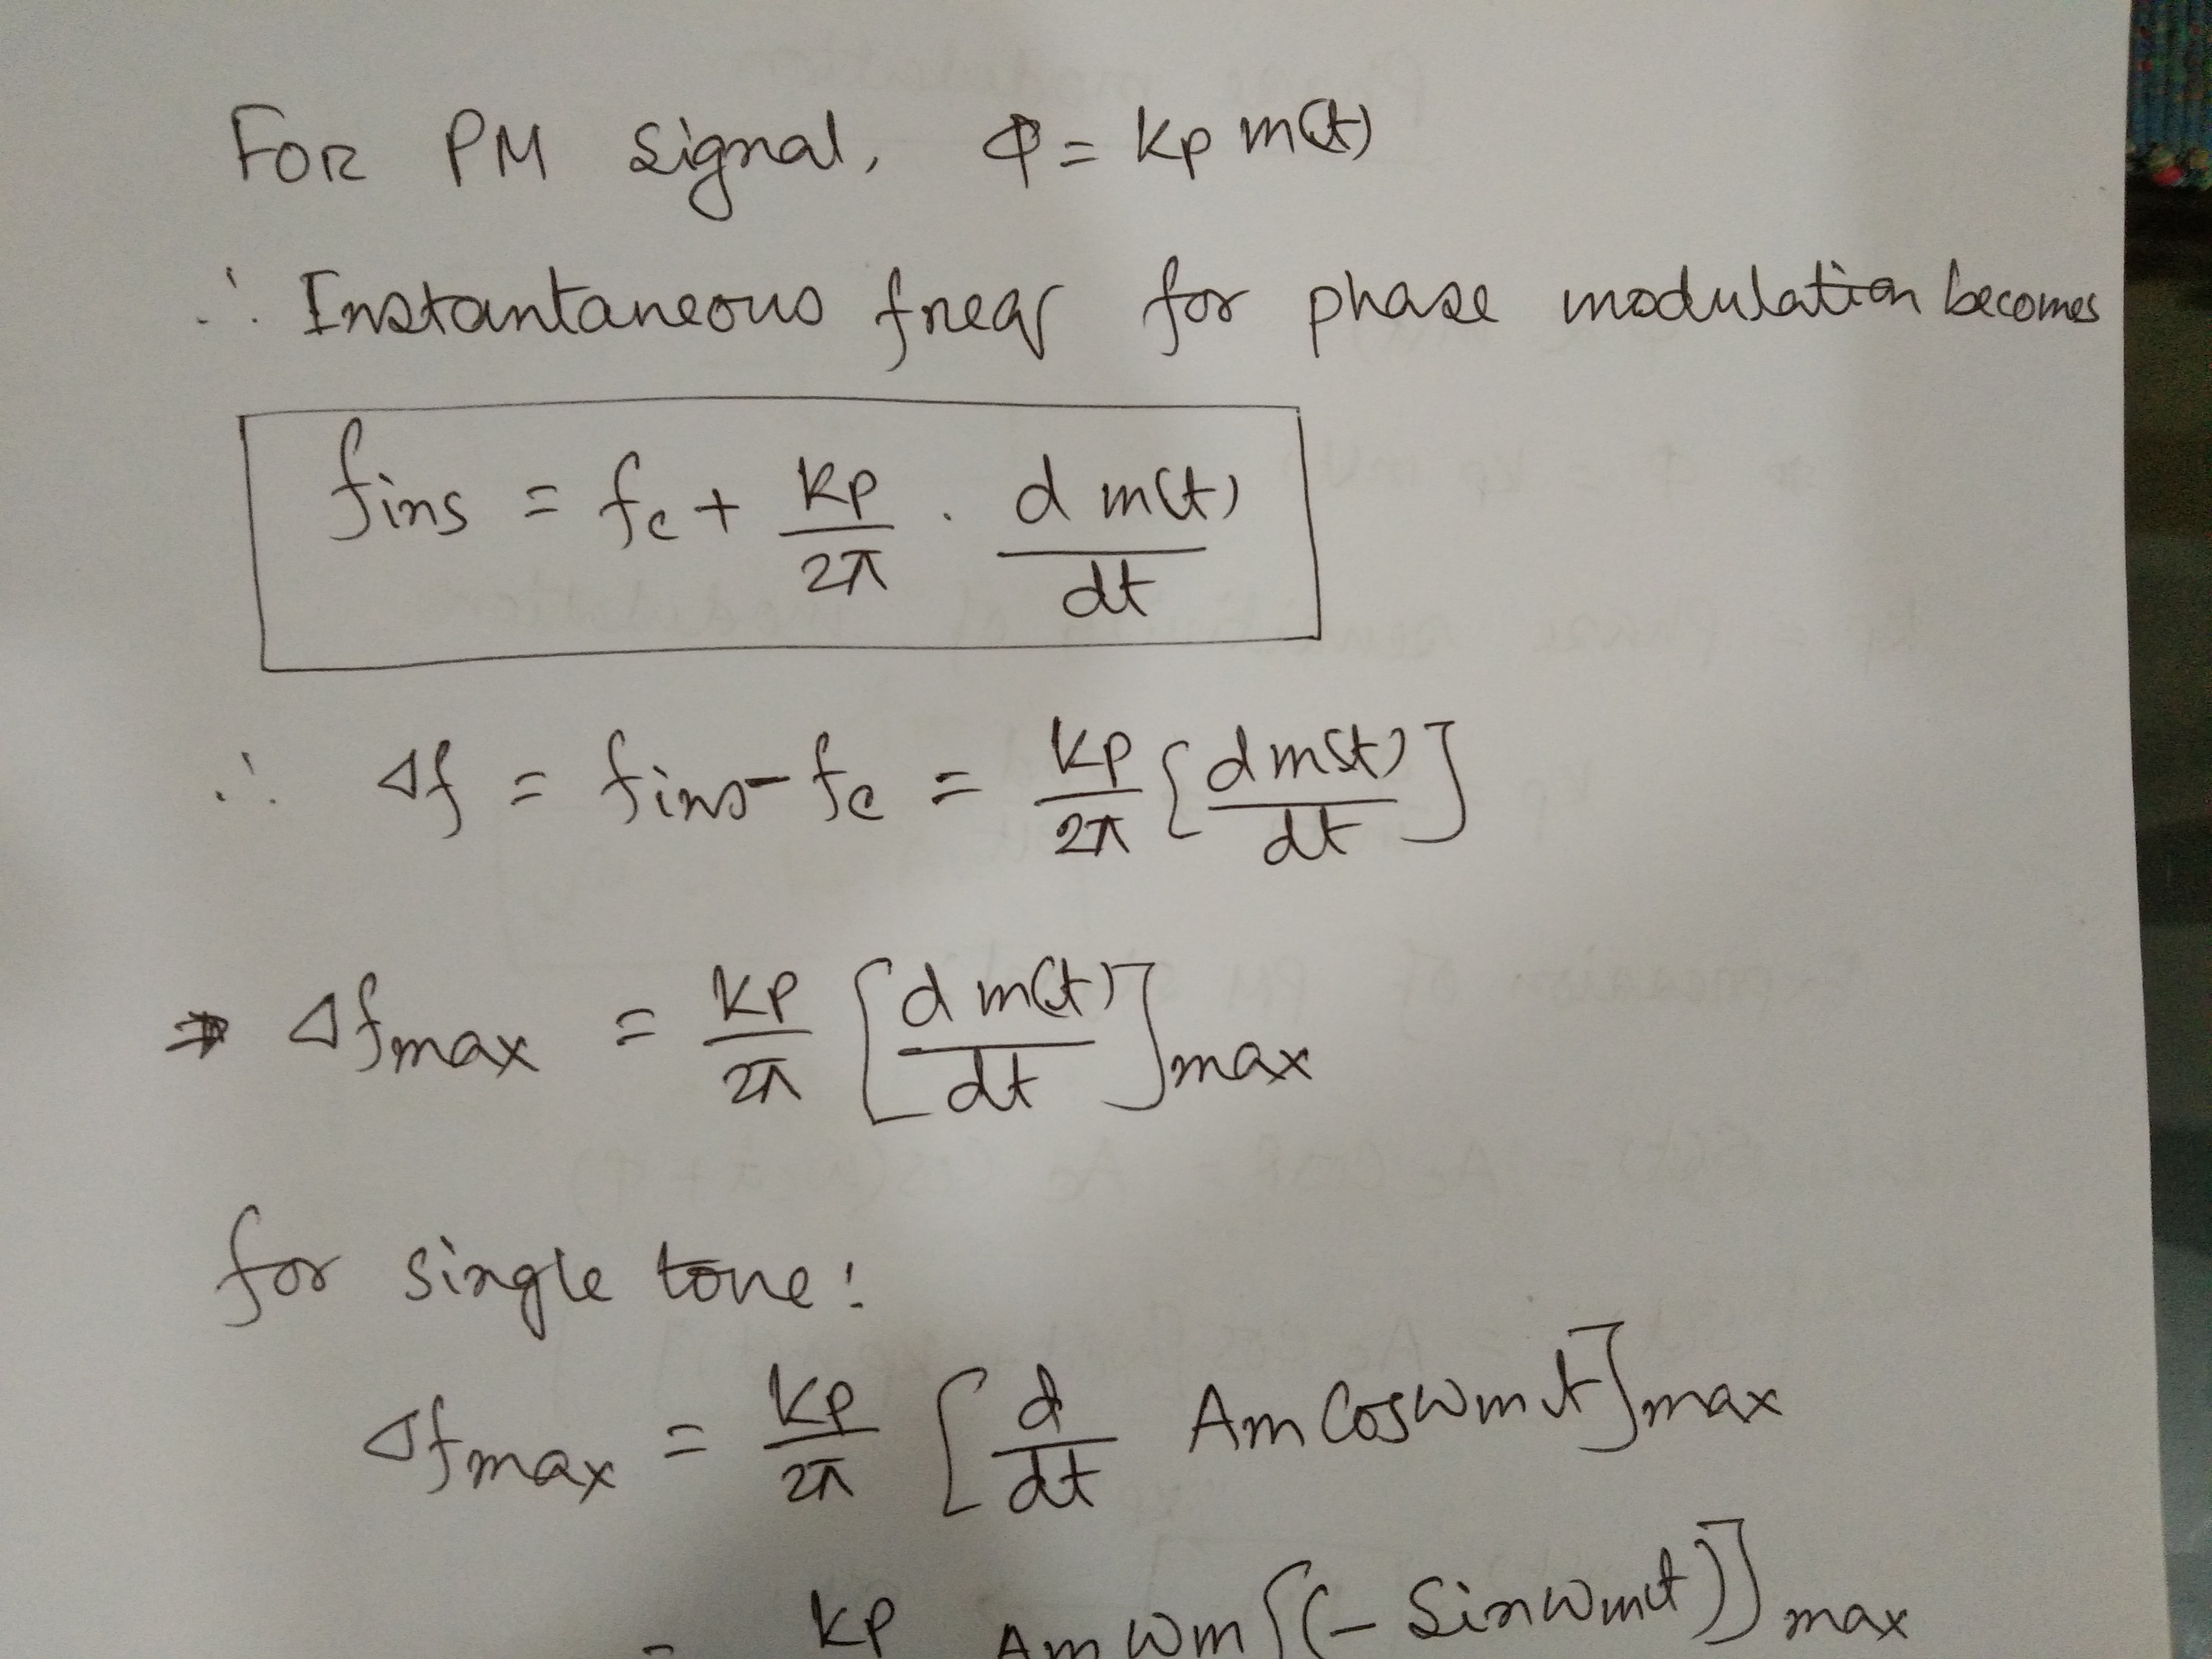 FOR PM signal, Φ = Kp m(t)
∴ Instantaneous freq for phase modulation becomes
fins = fc + Kp/2π . d m(t)/dt
∴ Δf = fins - fc = Kp/2π [d m(t)/dt]
⇒ Δfmax = Kp/2π [d m(t)/dt]max
for single tone:
Δfmax = Kp/2π [d/dt Am Cos ωmt]max
= Kp Am ωm [(- Sin ωmt)]max